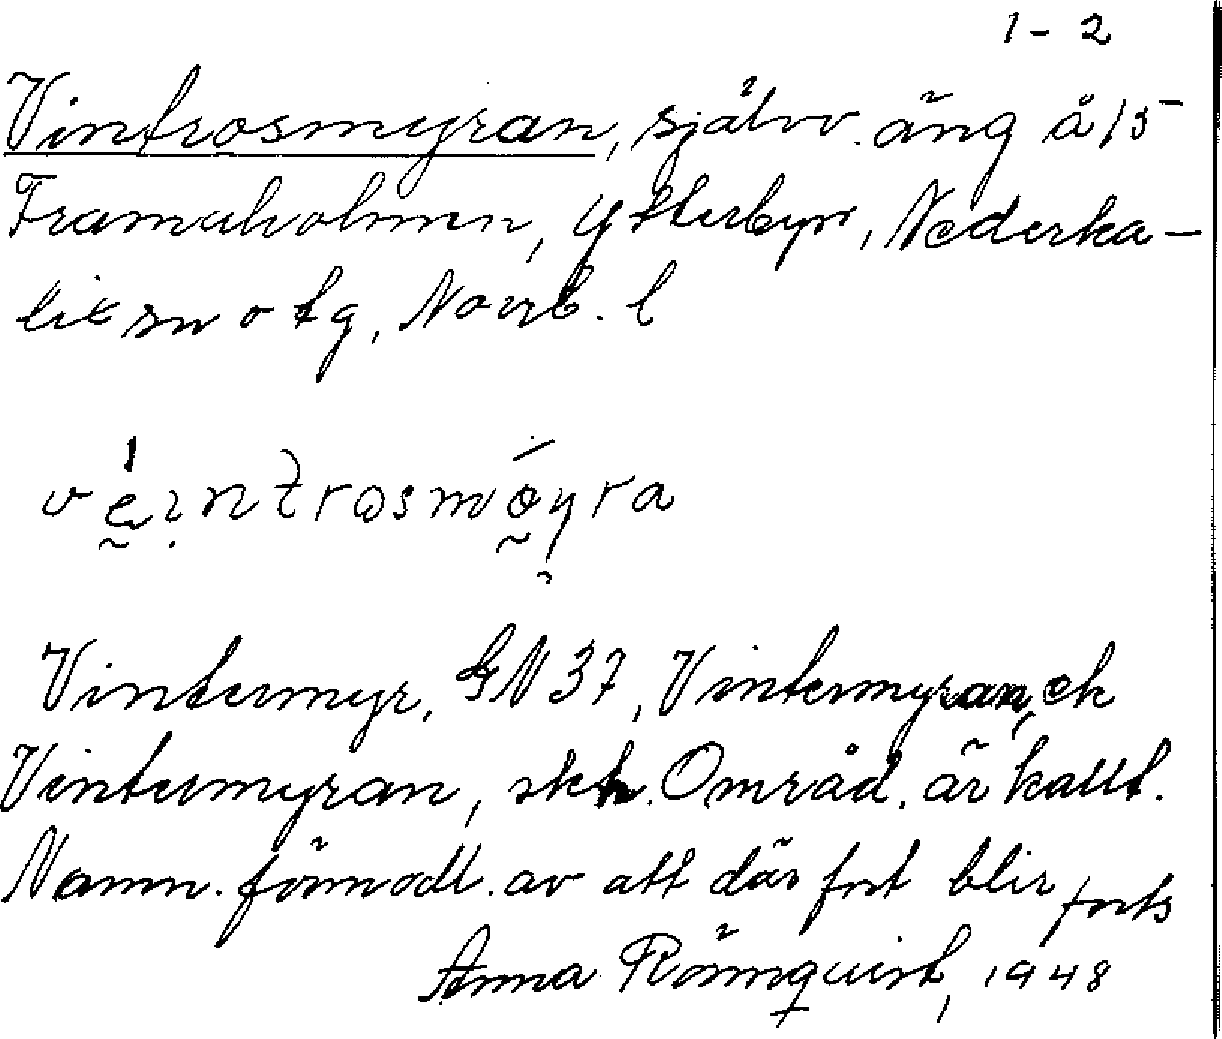 1-2
Vintrosmyran, självv. äng å 15
Framuholmen, Ytterbyn, Nederka-
lix sn o tg, Norrb. l
véi̤ntrosmǿyra
Vintermyr, GN 37, Vintermyran, ek
Vintermyran, skh. Områd. är kallt.
Namn. förmodl. av att där fort blir forts
Anna Rönnquist, 1948